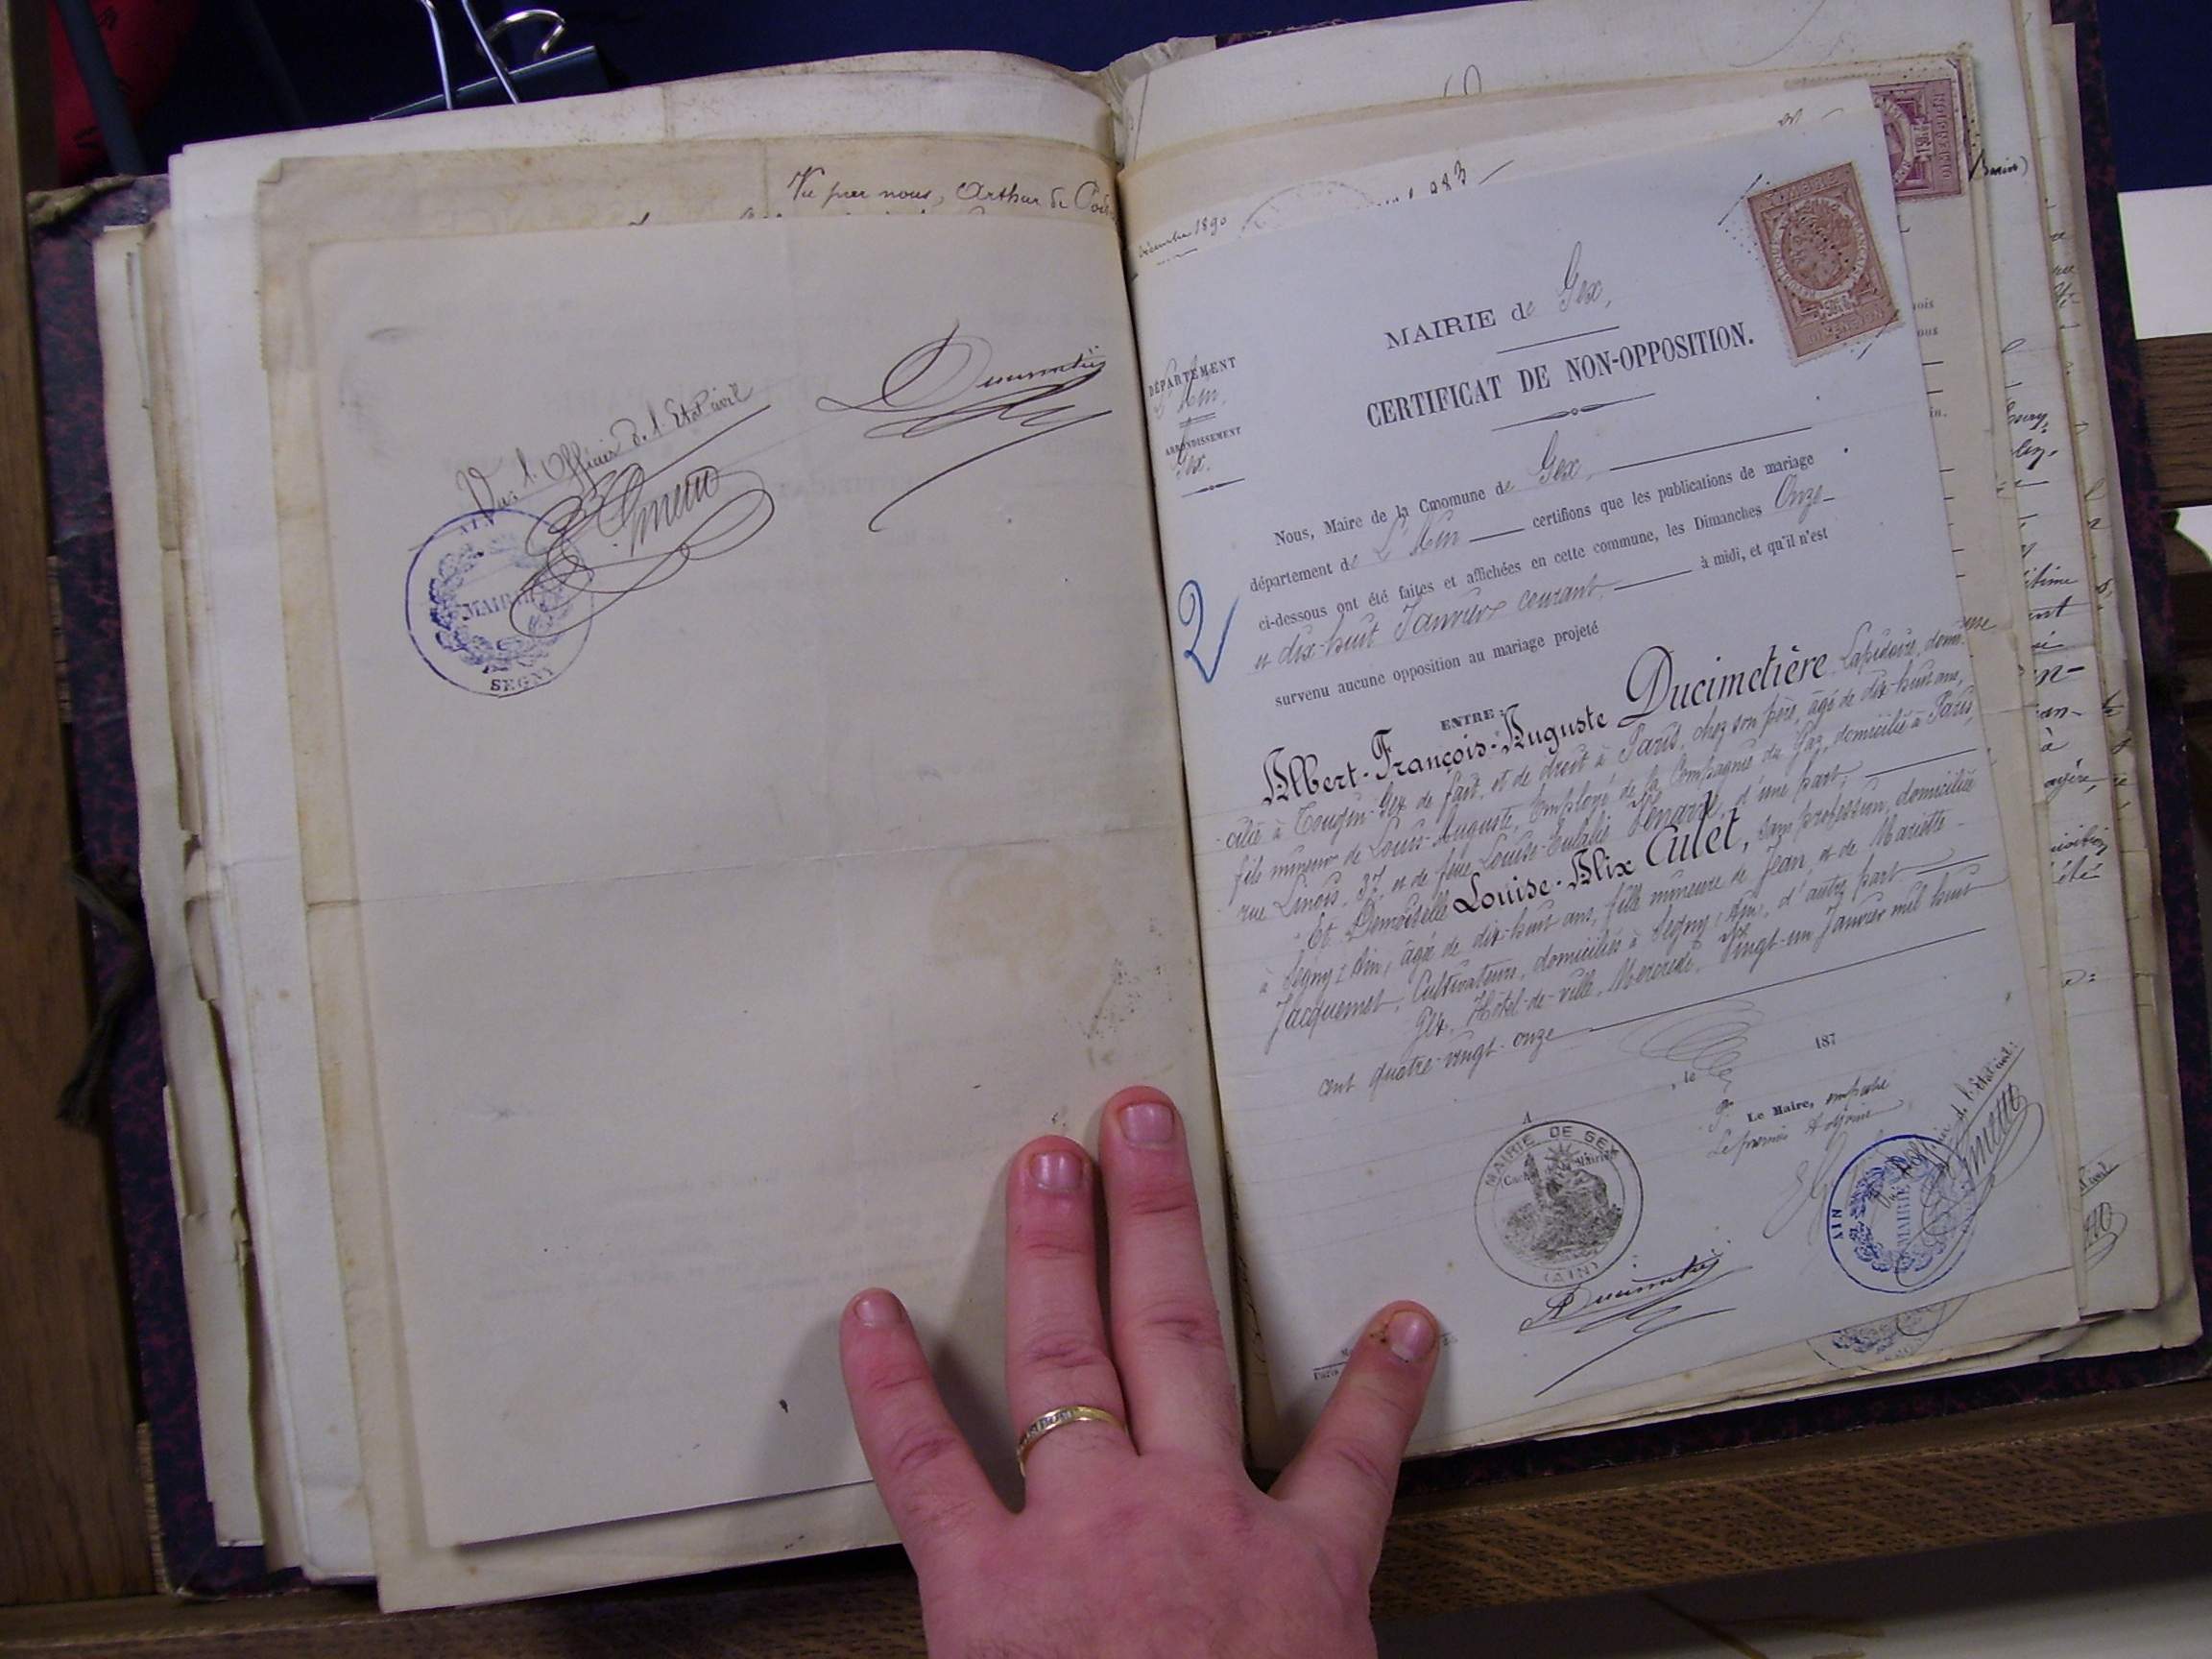 Vu par nous, Arthur de
Ducimetière
Vu: l'Officier de l'Etat civil
MAIRIE
SEGNY
AIN
Décembre 1890
MAIRIE de Gex,
CERTIFICAT DE NON-OPPOSITION.
DÉPARTEMENT
L'Ain.
ARRONDISSEMENT
Gex.
2
Nous, Maire de la Cmomune de Gex,
département de L'Ain certifions que les publications de mariage
ci-dessous ont été faites et affichées en cette commune, les Dimanches Onze
et dix-huit Janvier courant, à midi, et qu'il n'est
survenu aucune opposition au mariage projeté
ENTRE:
Albert-François-Auguste Ducimetière Lapidaire, domi-
cilié à Tougin-Gex de fait, et de droit à Paris, chez son père, âgé de dix-huit ans,
fils mineur de Louis-Auguste, Employé de la Compagnie du Gaz, domicilié à Paris,
rue Linois, 37, et de feue Louise-Eulalie Penard, d'une part,
Et Demoiselle Louise-Alix Culet, sans profession, domiciliée
à Segny (Ain), âgée de dix-huit ans, fille mineure de Jean, et de Mariette
Jacquemet, Cultivateurs, domiciliés à Segny (Ain), d'autre part
Gex, Hôtel-de-ville, Mercredi, Vingt-un Janvier mil huit
cent quatre-vingt-onze
A , le 187
Pr Le Maire, empêché
Le premier Adjoint
MAIRIE DE GEX
Cachet de la Mairie
(AIN)
MAIRIE
AIN
l'Officier de l'Etat civil:
A Ducimetière
Paris